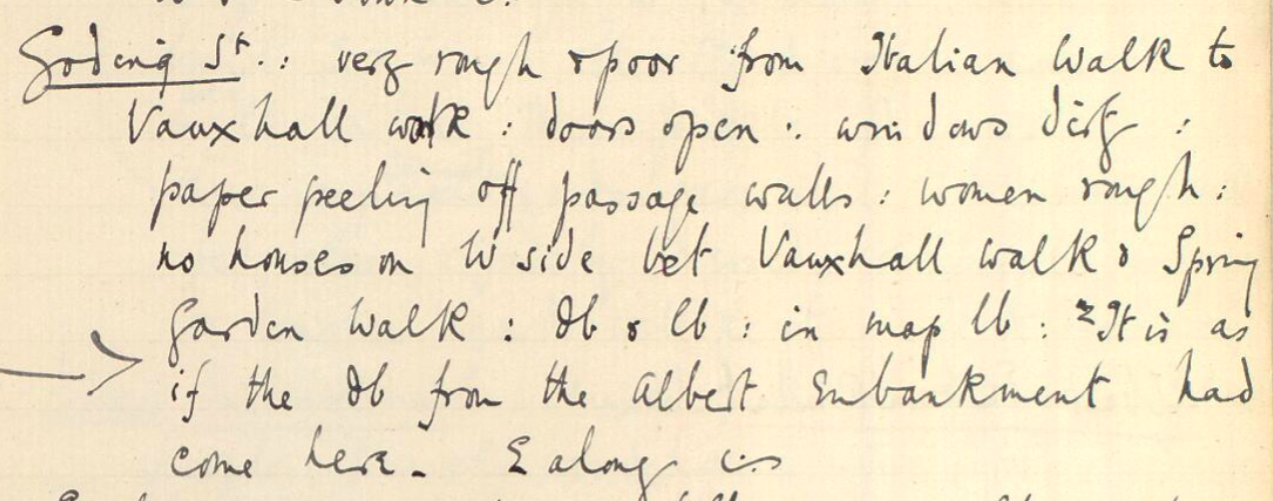 Goding St. : very rough & poor from Italian Walk to
Vauxhall walk : doors open : windows dirty :
paper peeling off passage walls : women rough :
no houses on W side bet Vauxhall walk & Spring
Garden Walk : db & lb : in map lb : It is as
if the db from the Albert Embankment had
come here. E along